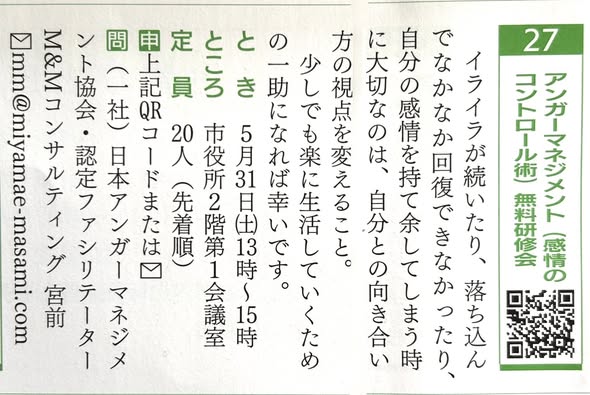 27
アンガーマネジメント（感情の
コントロール術）無料研修会
イライラが続いたり、落ち込ん
でなかなか回復できなかったり、
自分の感情を持て余してしまう時
に大切なのは、自分との向き合い
方の視点を変えること。
少しでも楽に生活していくため
の一助になれば幸いです。
とき 5月31日㈯13時〜15時
ところ 市役所2階第1会議室
定員 20人（先着順）
申上記QRコードまたは✉
問（一社）日本アンガーマネジメ
ント協会・認定ファシリテーター
M&Mコンサルティング 宮前
✉mm@miyamae-masami.com